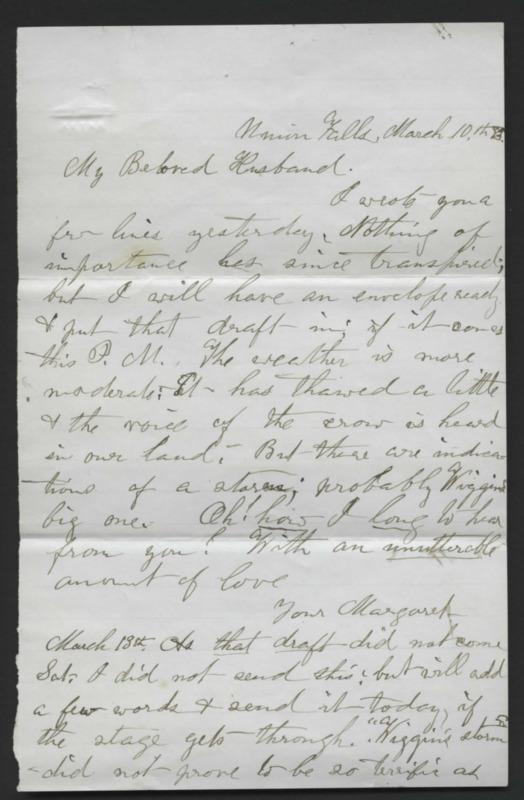 Union Falls, March 10.th
My Beloved Husband.
I wrote you a
few lines yesterday. Nothing of
importance has since transpired;
but I will have an envelope ready
& put that draft in, if it comes
this P. M. The weather is more
moderate. It has thawed a little
& the voice of the crow is heard
in our land. But there are indica
tions of a storm; probably Wiggins
big one. Oh! how I long to hear
from you! With an unutterable
amount of love
Your Margaret
March 13th. As that draft did not come
Sat. I did not send this; but will add
a few words & send it today, if
the stage gets through. "Wiggins storm"
did not prove to be so terrific as